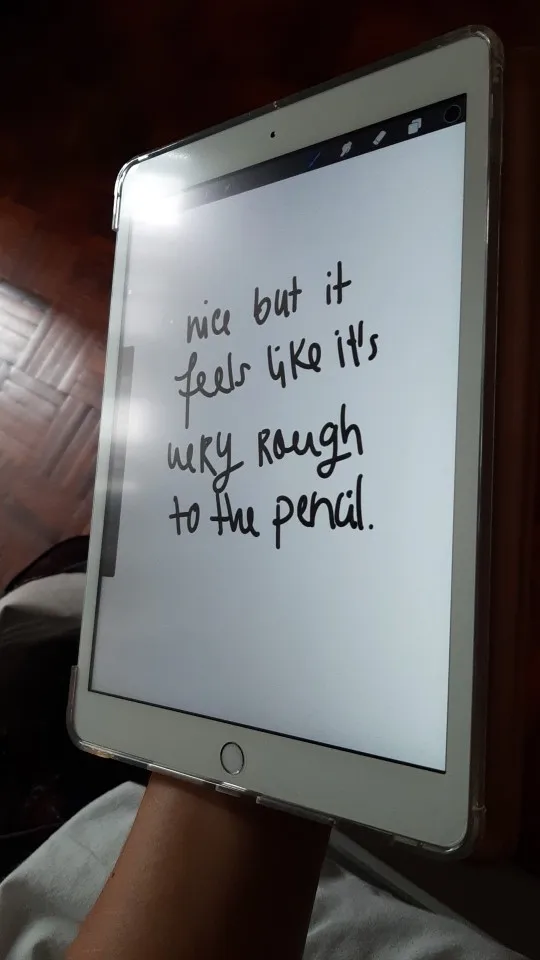 nice but it
feels like it's
very rough
to the pencil.